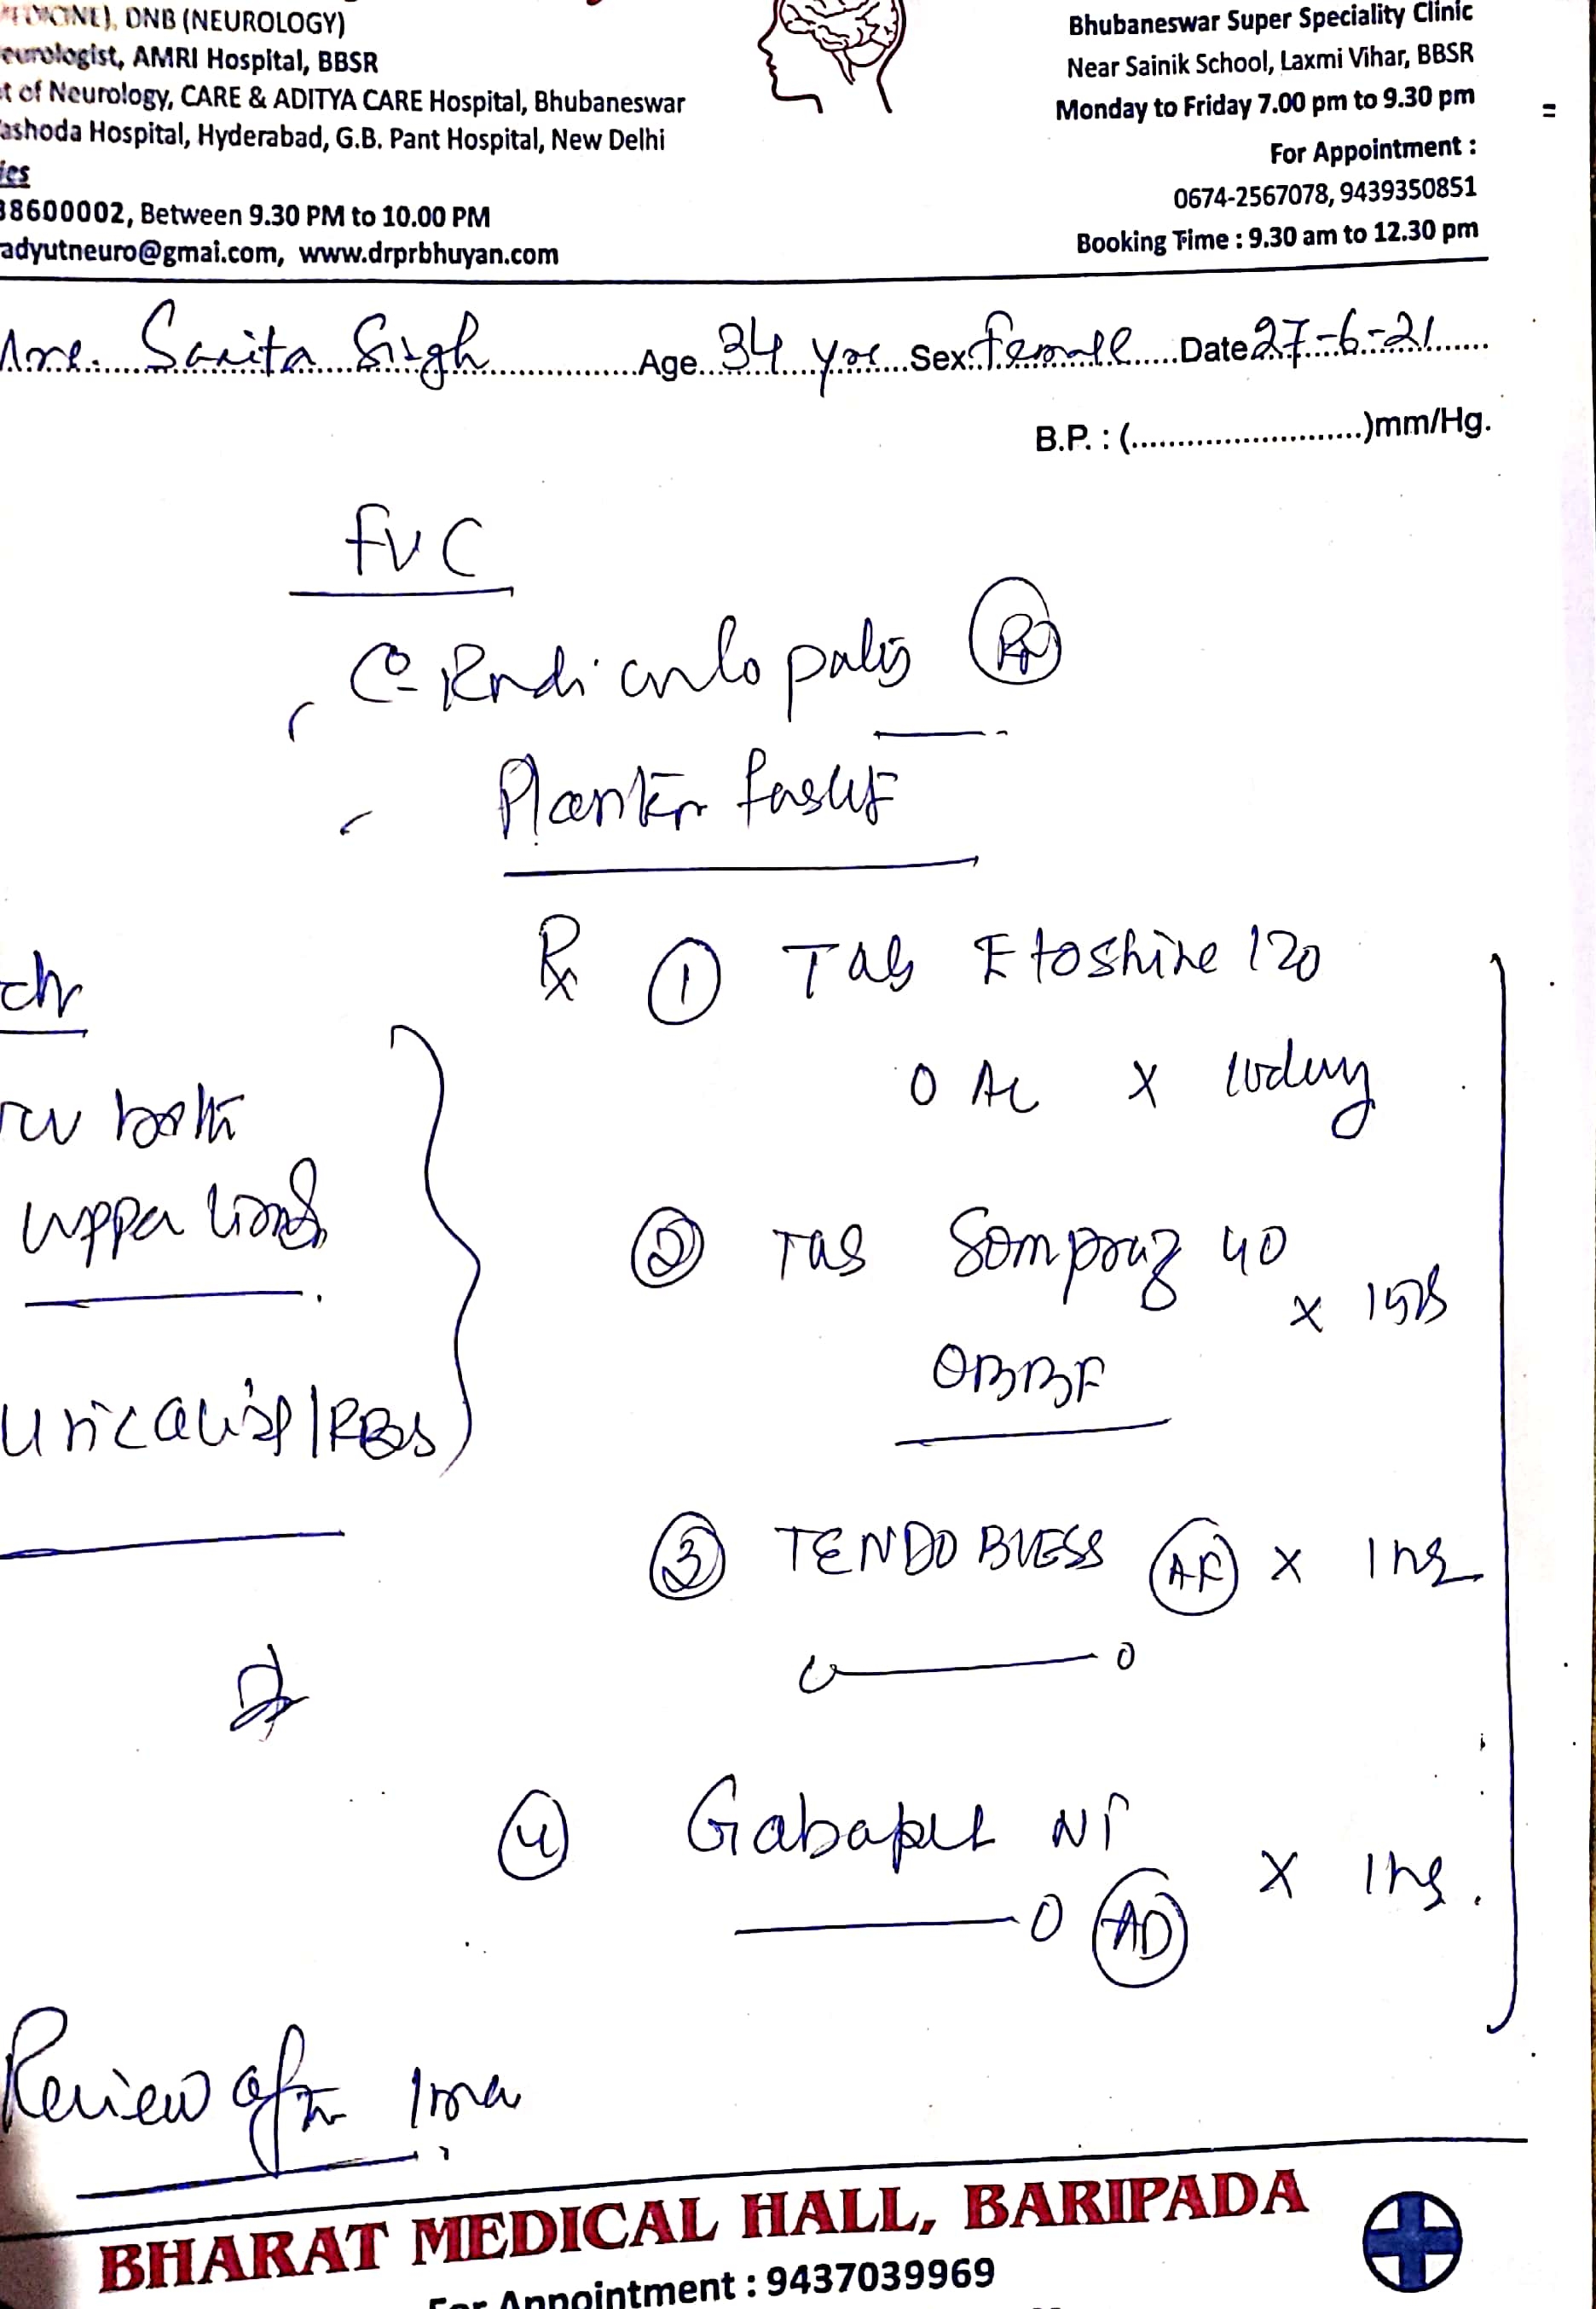 DNB (NEUROLOGY)
eurologist, AMRI Hospital, BBSR
t of Neurology, CARE & ADITYA CARE Hospital, Bhubaneswar
ashoda Hospital, Hyderabad, G.B. Pant Hospital, New Delhi
ies
38600002, Between 9.30 PM to 10.00 PM
adyutneuro@gmai.com, www.drprbhuyan.com
Bhubaneswar Super Speciality Clinic
Near Sainik School, Laxmi Vihar, BBSR
Monday to Friday 7.00 pm to 9.30 pm
For Appointment :
0674-2567078, 9439350851
Booking Time : 9.30 am to 12.30 pm
Sarita Singh Age 34 yrs Sex Female Date 27-6-21
B.P. : (..........................)mm/Hg.
FUC
Planter
Rx ① Tab Etoshine 120
x 10day
② Tab Sompraz 40
x 15
OBBF
③ TENDOBLESS AF x 1
④ Gabapet NT
AD x 1
both
upper limb
uric acid / RBS
Review after 1
BHARAT MEDICAL HALL, BARIPADA
For Appointment : 9437039969